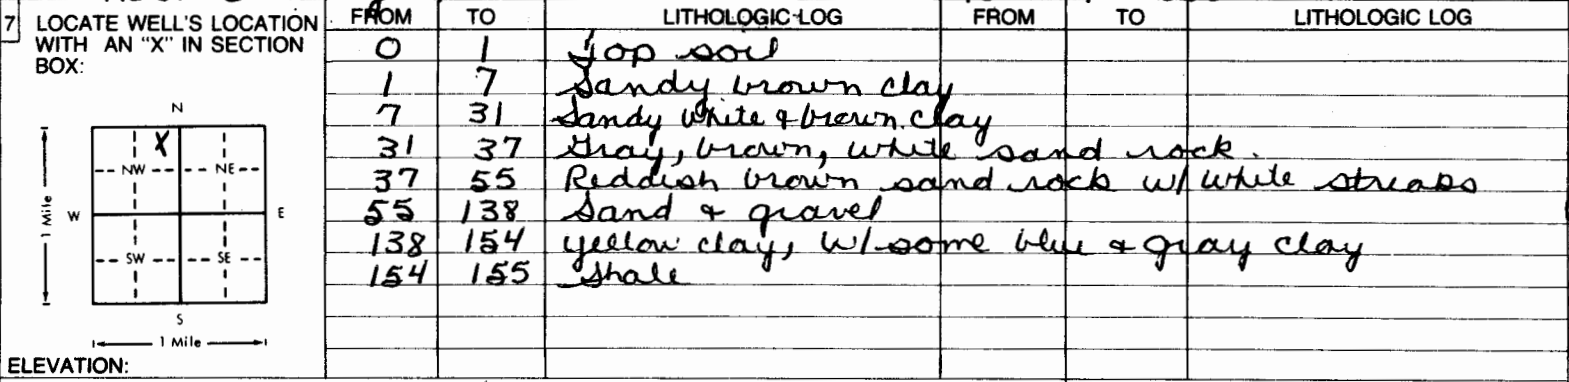 7 LOCATE WELL'S LOCATION WITH AN "X" IN SECTION BOX:
N
X
NW NE
W E
1 Mile
SW SE
S
1 Mile
ELEVATION:
FROM TO LITHOLOGIC LOG FROM TO LITHOLOGIC LOG
0 1 Top soil
1 7 Sandy brown clay
7 31 Sandy white & brown clay
31 37 Gray, brown, white sand rock.
37 55 Reddish brown sand rock w/ white streaks
55 138 Sand & gravel
138 154 yellow clay, w/ some blue & gray clay
154 155 Shale